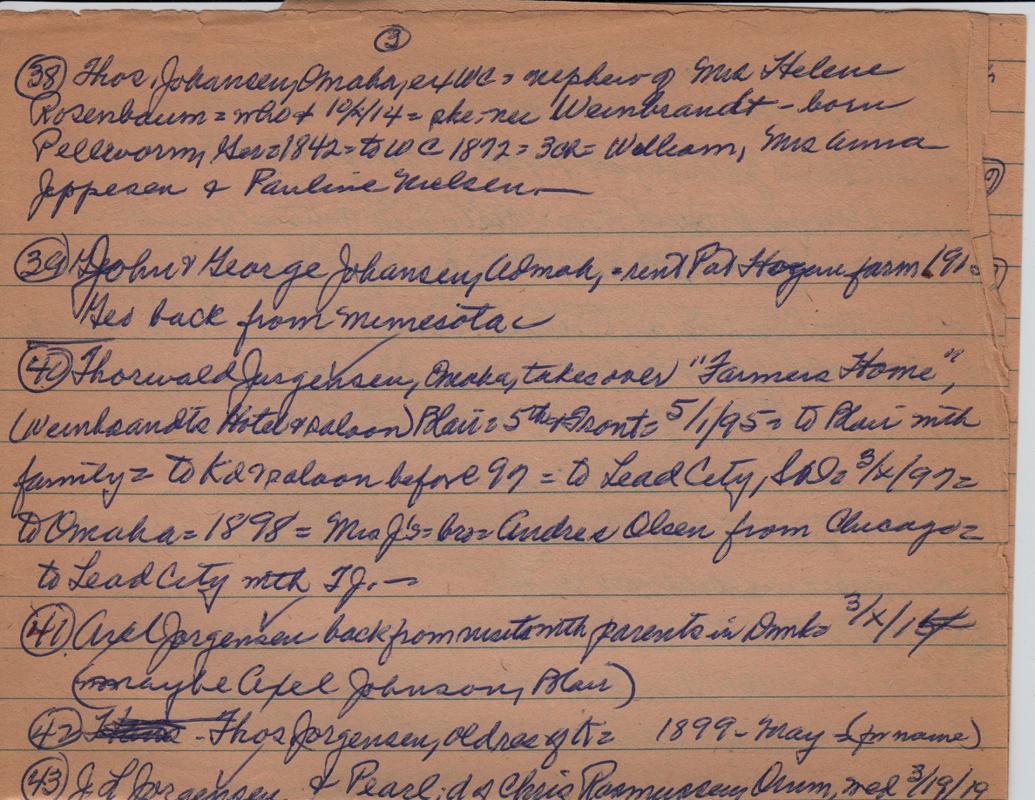 ③
㊳ Thos. Johansen, Omaha, ex WC = nephew of Mrs Helene
Rosenbaum = who d 10/x/14 = she-nee Weinbrandt - born
Pellworm, Ger = 1842 = to W C 1872 = 3ch = William, Mrs Anna
Jeppesen & Pauline Nielsen. —
㊴ John & George Johansen, Admah, = rent Pat Hogan farm
Geo back from Minnesota
㊵ Thorwald Jurgensen, Omaha, takes over "Farmers Home",
(Weinbrandts Hotel & saloon) Blair = 5th & Front = 5/1/95 = to Blair with
family = to Kd & saloon before 97 = to Lead City, S.D. = 3/x/97 =
to Omaha = 1898 = Mrs J's = bro = Andres Olsen from Chicago =
to Lead City with T J. —
㊶ Axel Jorgensen back from visit with parents in Dmk = 3/x/
(maybe Axel Johnson, Blair)
㊷ - Thos Jorgensen, old res of K = 1899 - May - (for name)
㊸ J. L. Jorgensen & Pearl, d of Chris Rasmussen, Orum, md 3/19/19